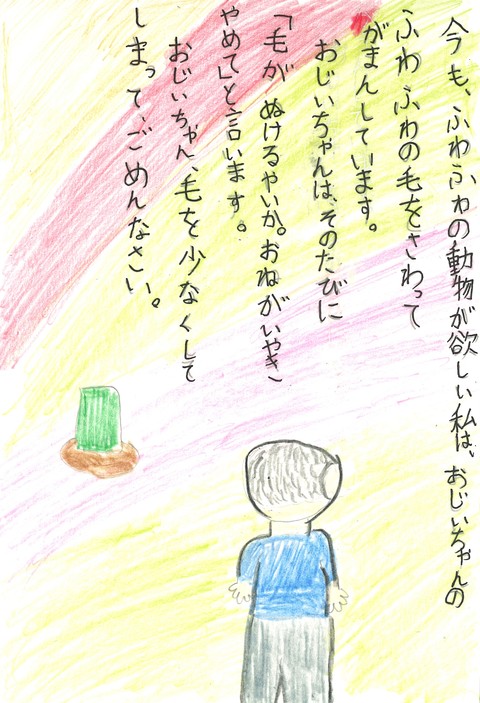 今も、ふわふわの動物が欲しい私は、おじいちゃんの
ふわふわの毛をさわって
がまんしています。
おじいちゃんは、そのたびに
「毛がぬけるやいか。おねがいやき、
やめて」と言います。
おじいちゃん、毛を少なくして
しまって、ごめんなさい。